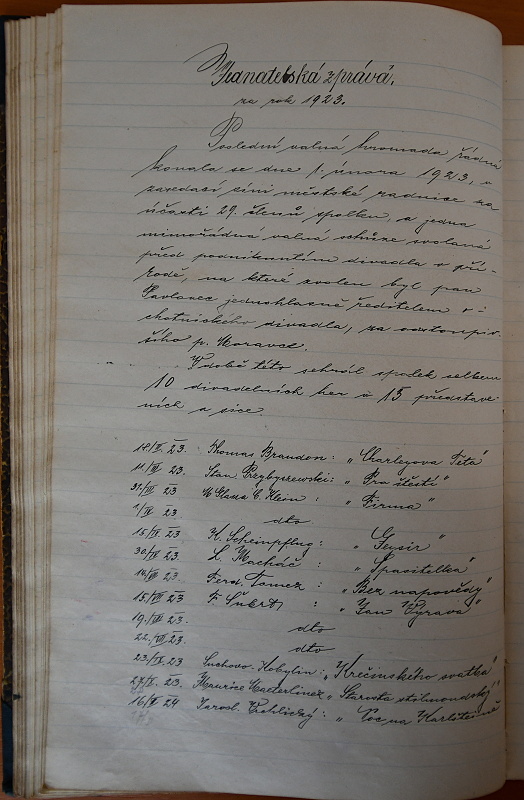 Jednatelská zpráva.
za rok 1923.
Poslední valná hromada řádná
konala se dne 1. února 1923, v
zasedací síni městské radnice za
účasti 29. členů spolku, a jedna
mimořádná valná schůze svolaná
před podniknutím divadla v pří-
rodě, na které zvolen byl pan
Pavlovec jednohlasně ředitelem o-
chotnického divadla, za odstoupiv-
šího p. Moravce.
V době této sehrál spolek celkem
10 divadelních her o 15 představe
ních a sice
18/II. 23. Thomas Brandon: „Charleyova Teta"
11/III 23. Stan. Przybyszewski: „Pro štěstí"
31/III 23 C. Klein: „Firma"
1/IV 23 dto
15/IV. 23 K. Scheinpflug: „Geysir"
30/ 23. L. Macháč: „Spasitelka"
14/ 23. Ferd. : „Bez nápovědy"
15/VII 23 F. Šubrt: „Jan Výrava"
19/VII 23. dto
22./VII 23. dto
23/IX. 23 Suchovo-Kobylin: „Krečinského svatba"
27/ 23. Maurice Maeterlinck „Starosta stilmondský"
16/ 24 Jarosl. Vrchlický: „Noc na Karlštejně